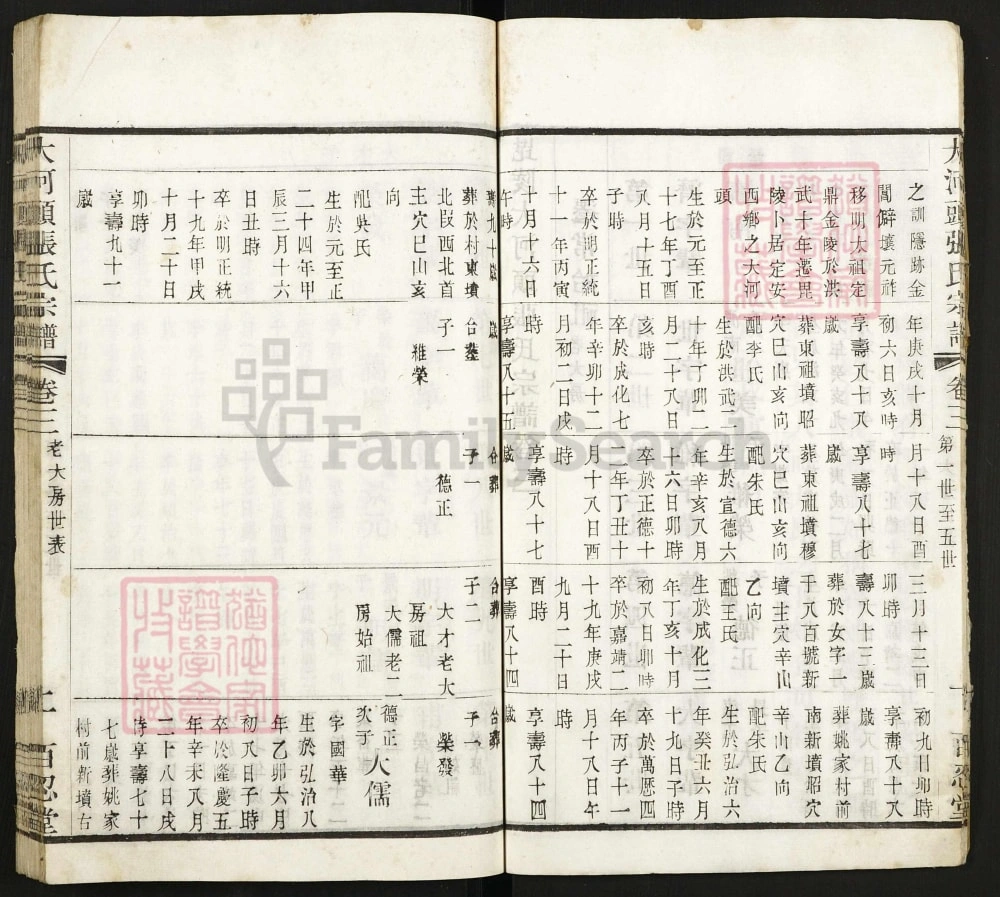 大河頭張氏宗譜 卷三 第一世至五世 百忍堂
之訓隱跡金
閶僻壤元祚
移明太祖定
鼎金陵於洪
武十年遷毘
陵卜居定安
西鄉之大河
頭
生於元至正
十七年丁酉
八月十五日
子時
卒於明正統
十一年丙寅
十月十六日
午時
年庚戌十月
初六日亥時
享壽八十八
歲
葬東祖墳昭
穴巳山亥向
配李氏
生於洪武二
十年丁卯二
月二十八日
亥時
卒於成化七
年辛卯十二
月初二日戌
時
享壽八十五
月十八日酉
時
享壽八十七
歲
葬東祖墳穆
穴巳山亥向
配朱氏
生於宣德六
年辛亥八月
十六日卯時
卒於正德十
二年丁丑十
月十八日酉
時
享壽八十七
歲
三月十三日
卯時
壽八十三歲
葬於女字一
千八百號新
墳主穴辛山
乙向
配王氏
生於成化三
年丁亥十月
初八日卯時
卒於嘉靖二
十九年庚戌
九月二十日
酉時
享壽八十四
初九日卯時
享壽八十八
歲
葬姚家村前
南新墳昭穴
辛山乙向
配朱氏
生於弘治六
年癸丑六月
十九日子時
卒於萬歷四
年丙子十一
月十八日午
時
享壽八十四
歲
壽九十歲
葬於村東墳
北段西北首
主穴巳山亥
向
配吳氏
生於元至正
二十四年甲
辰三月十六
日丑時
卒於明正統
十九年甲戌
十月二十日
卯時
享壽九十一
歲
歲
合葬
子一
雅榮
合葬
子一
德正
合葬
子二
大才老大
房祖
大儒老二
房始祖
合葬
子一
榮發
德正
次子
大儒
字國華
生於弘治八
年乙卯六月
初八日子時
卒於隆慶五
年辛未八月
二十八日戌
時享壽七十
七歲葬姚家
村前新墳右
大河頭張氏宗譜 卷三 老大房世表 百忍堂
FamilySearch